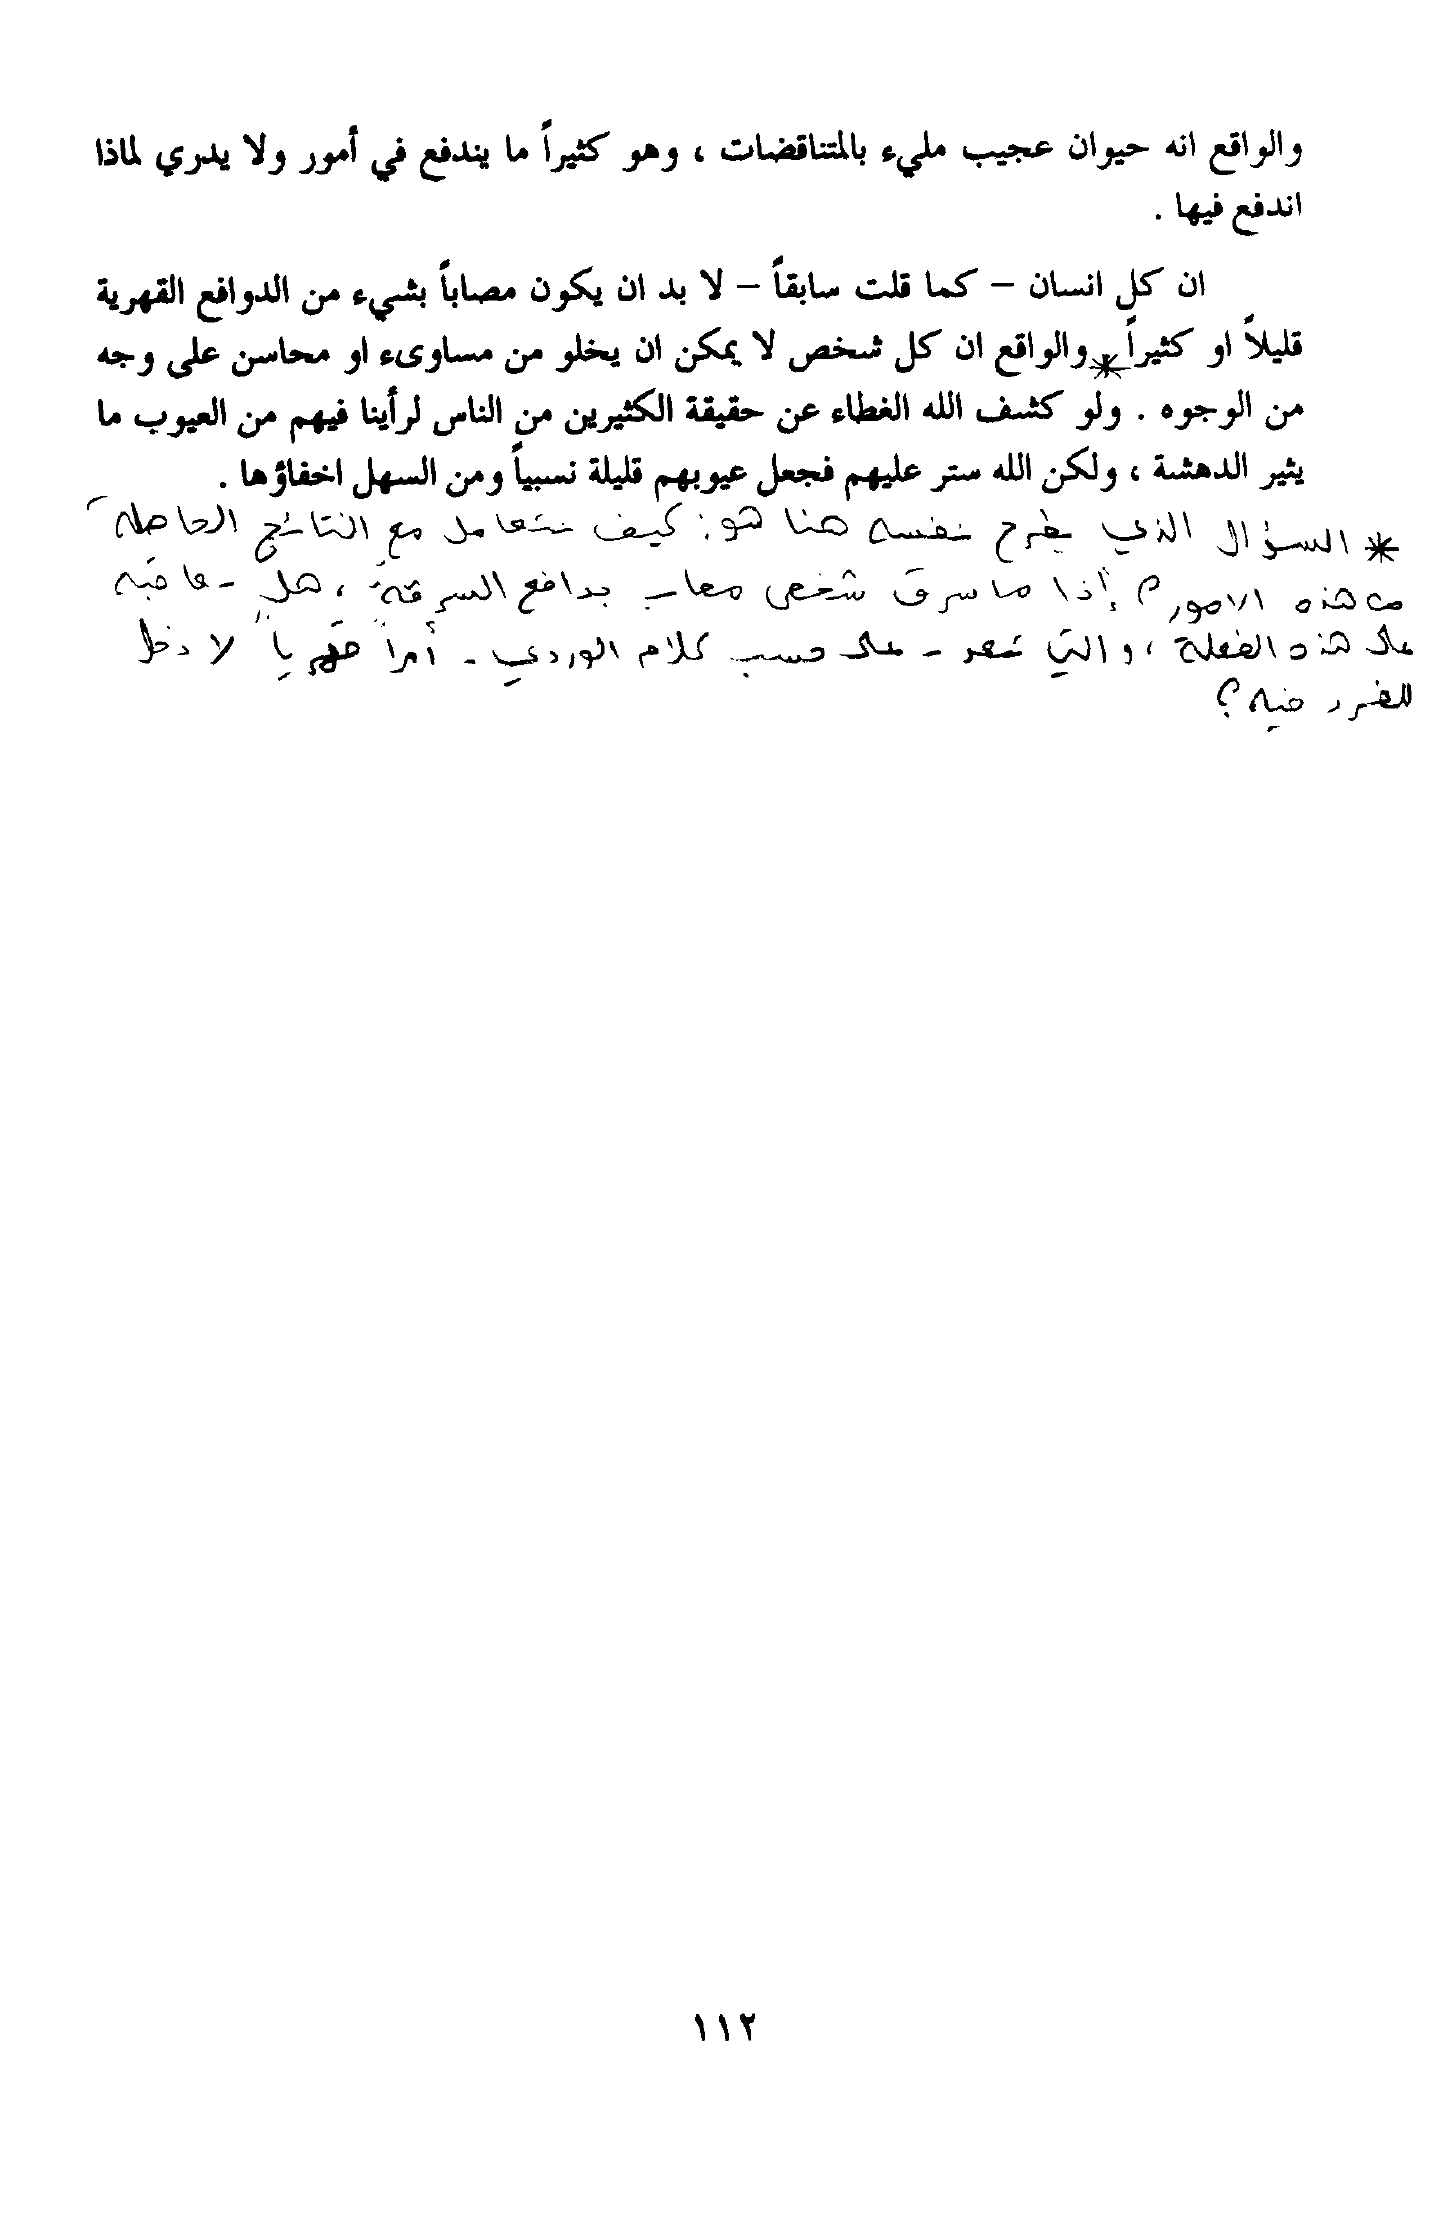 والواقع انه حيوان عجيب مليء بالمتناقضات ، وهو كثيراً ما يندفع في أمور ولا يدري لماذا
اندفع فيها .
ان كل انسان – كما قلت سابقاً – لا بد ان يكون مصاباً بشيء من الدوافع القهرية
قليلاً او كثيراً * والواقع ان كل شخص لا يمكن ان يخلو من مساوىء او محاسن على وجه
من الوجوه . ولو كشف الله الغطاء عن حقيقة الكثيرين من الناس لرأينا فيهم من العيوب ما
يثير الدهشة ، ولكن الله ستر عليهم فجعل عيوبهم قليلة نسبياً ومن السهل اخفاؤها .
* السؤال الذي يطرح نفسه هنا هو: كيف نتعامل مع النتائج الحاصلة
من هذه الامور؟ إذا ما سرق شخص مصاب بدافع السرقة، هل
على هذه الفعلة، والتي تعد - على حسب كلام الوردي - أمراً قهرياً لا دخل
للفرد فيه؟
١١٢